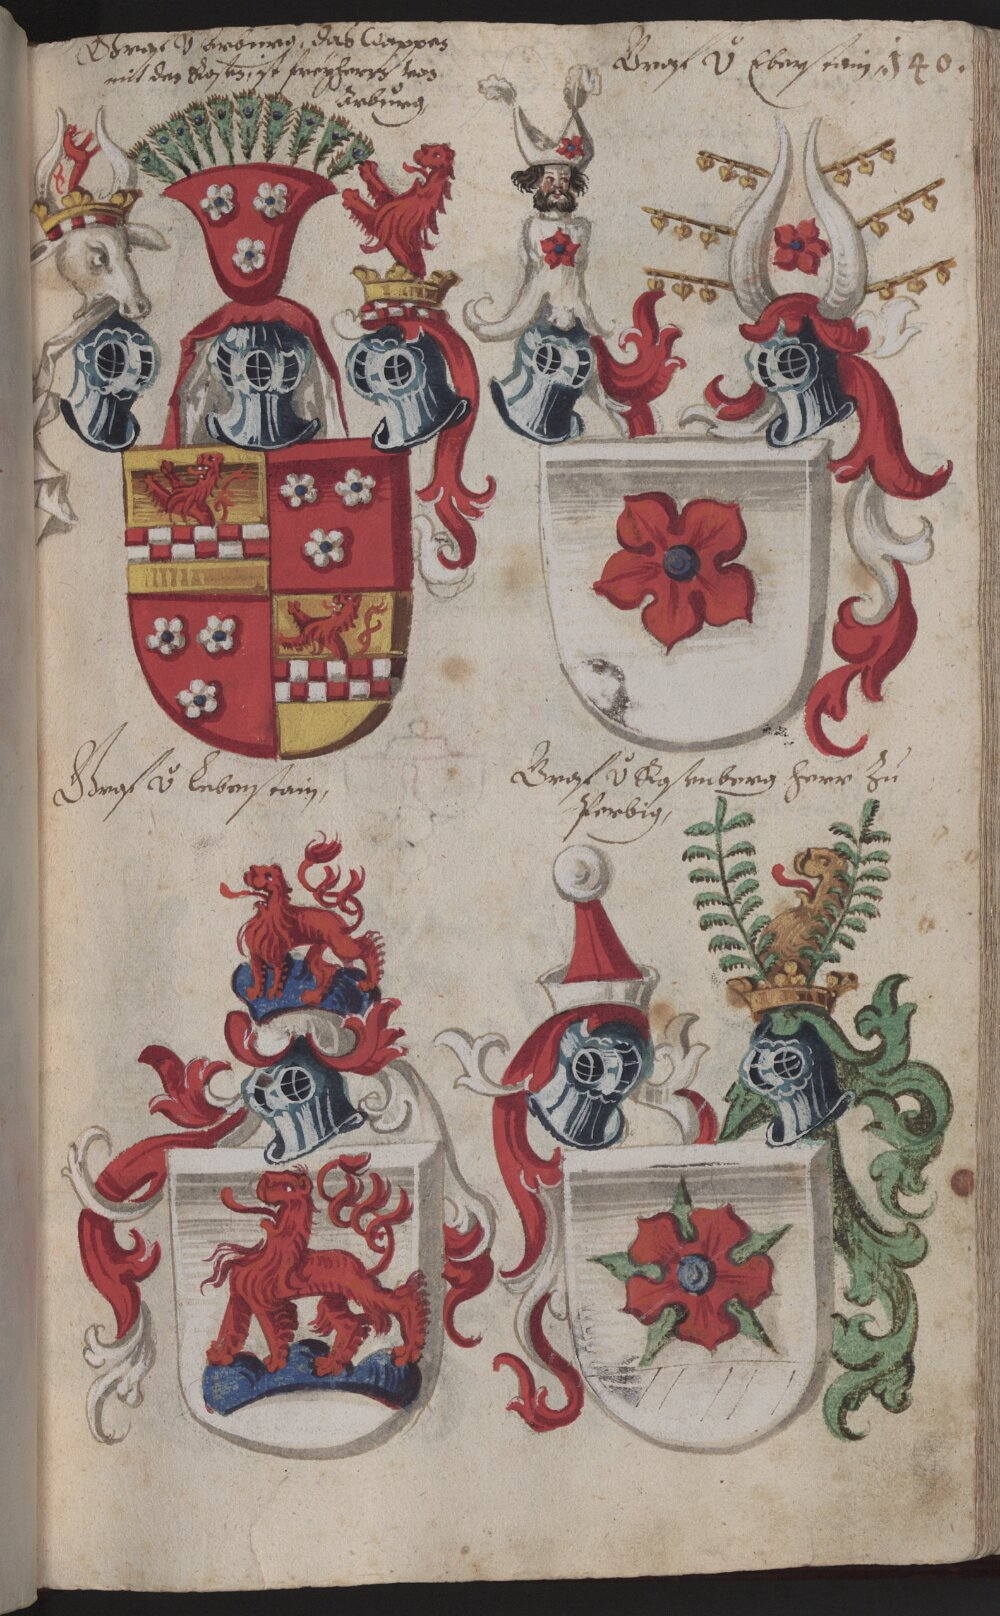 Graf v̊ Arburg, das Wappen
mit den Rosen, ist freyherrn von
Arburg,
Graf v̊ Eberstain, 140.
Graf v̊ Lebenstain,
Graf v̊ Rosenberg herr zu